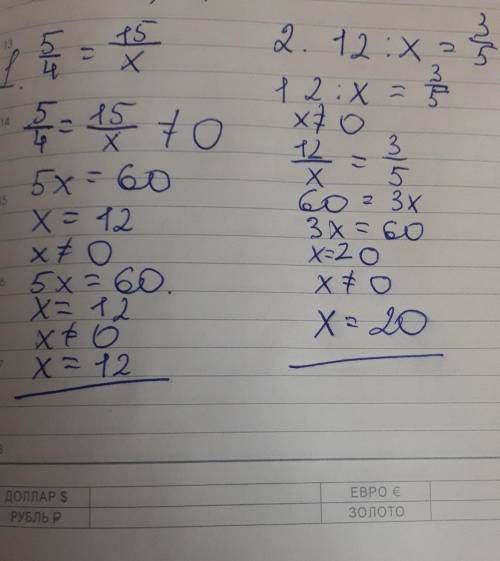 13
1. 5/4 = 15/x
14
5/4 = 15/x ≠ 0
5x = 60
15
x = 12
x ≠ 0
5x = 60.
x = 12
x ≠ 0
x = 12
2. 12 : x = 3/5
12 : x = 3/5
x ≠ 0
12/x = 3/5
60 = 3x
3x = 60
x = 20
x ≠ 0
x = 20
ДОЛЛАР $
ЕВРО €
РУБЛЬ ₽
ЗОЛОТО